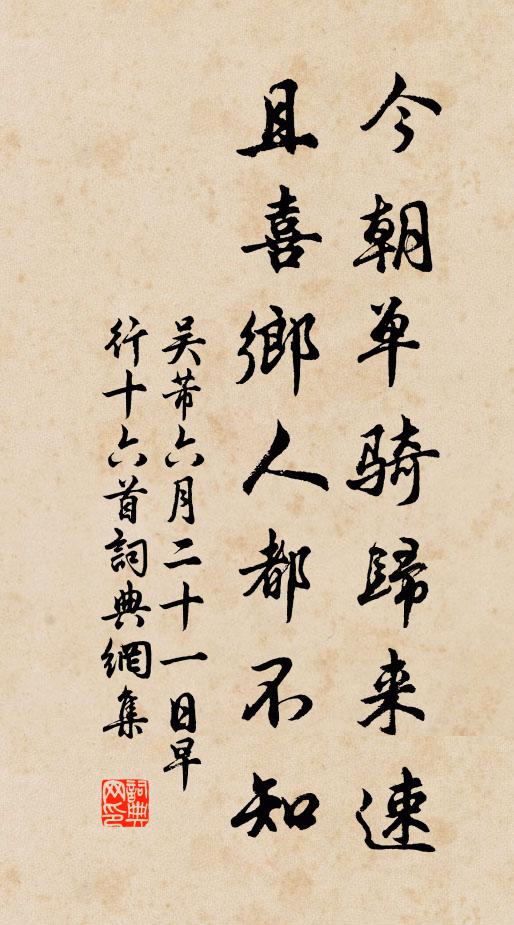 今朝单骑歸来速
且喜鄉人都不知
吴芾六月二十一日早
行十六首詞典網集
詞典
网印